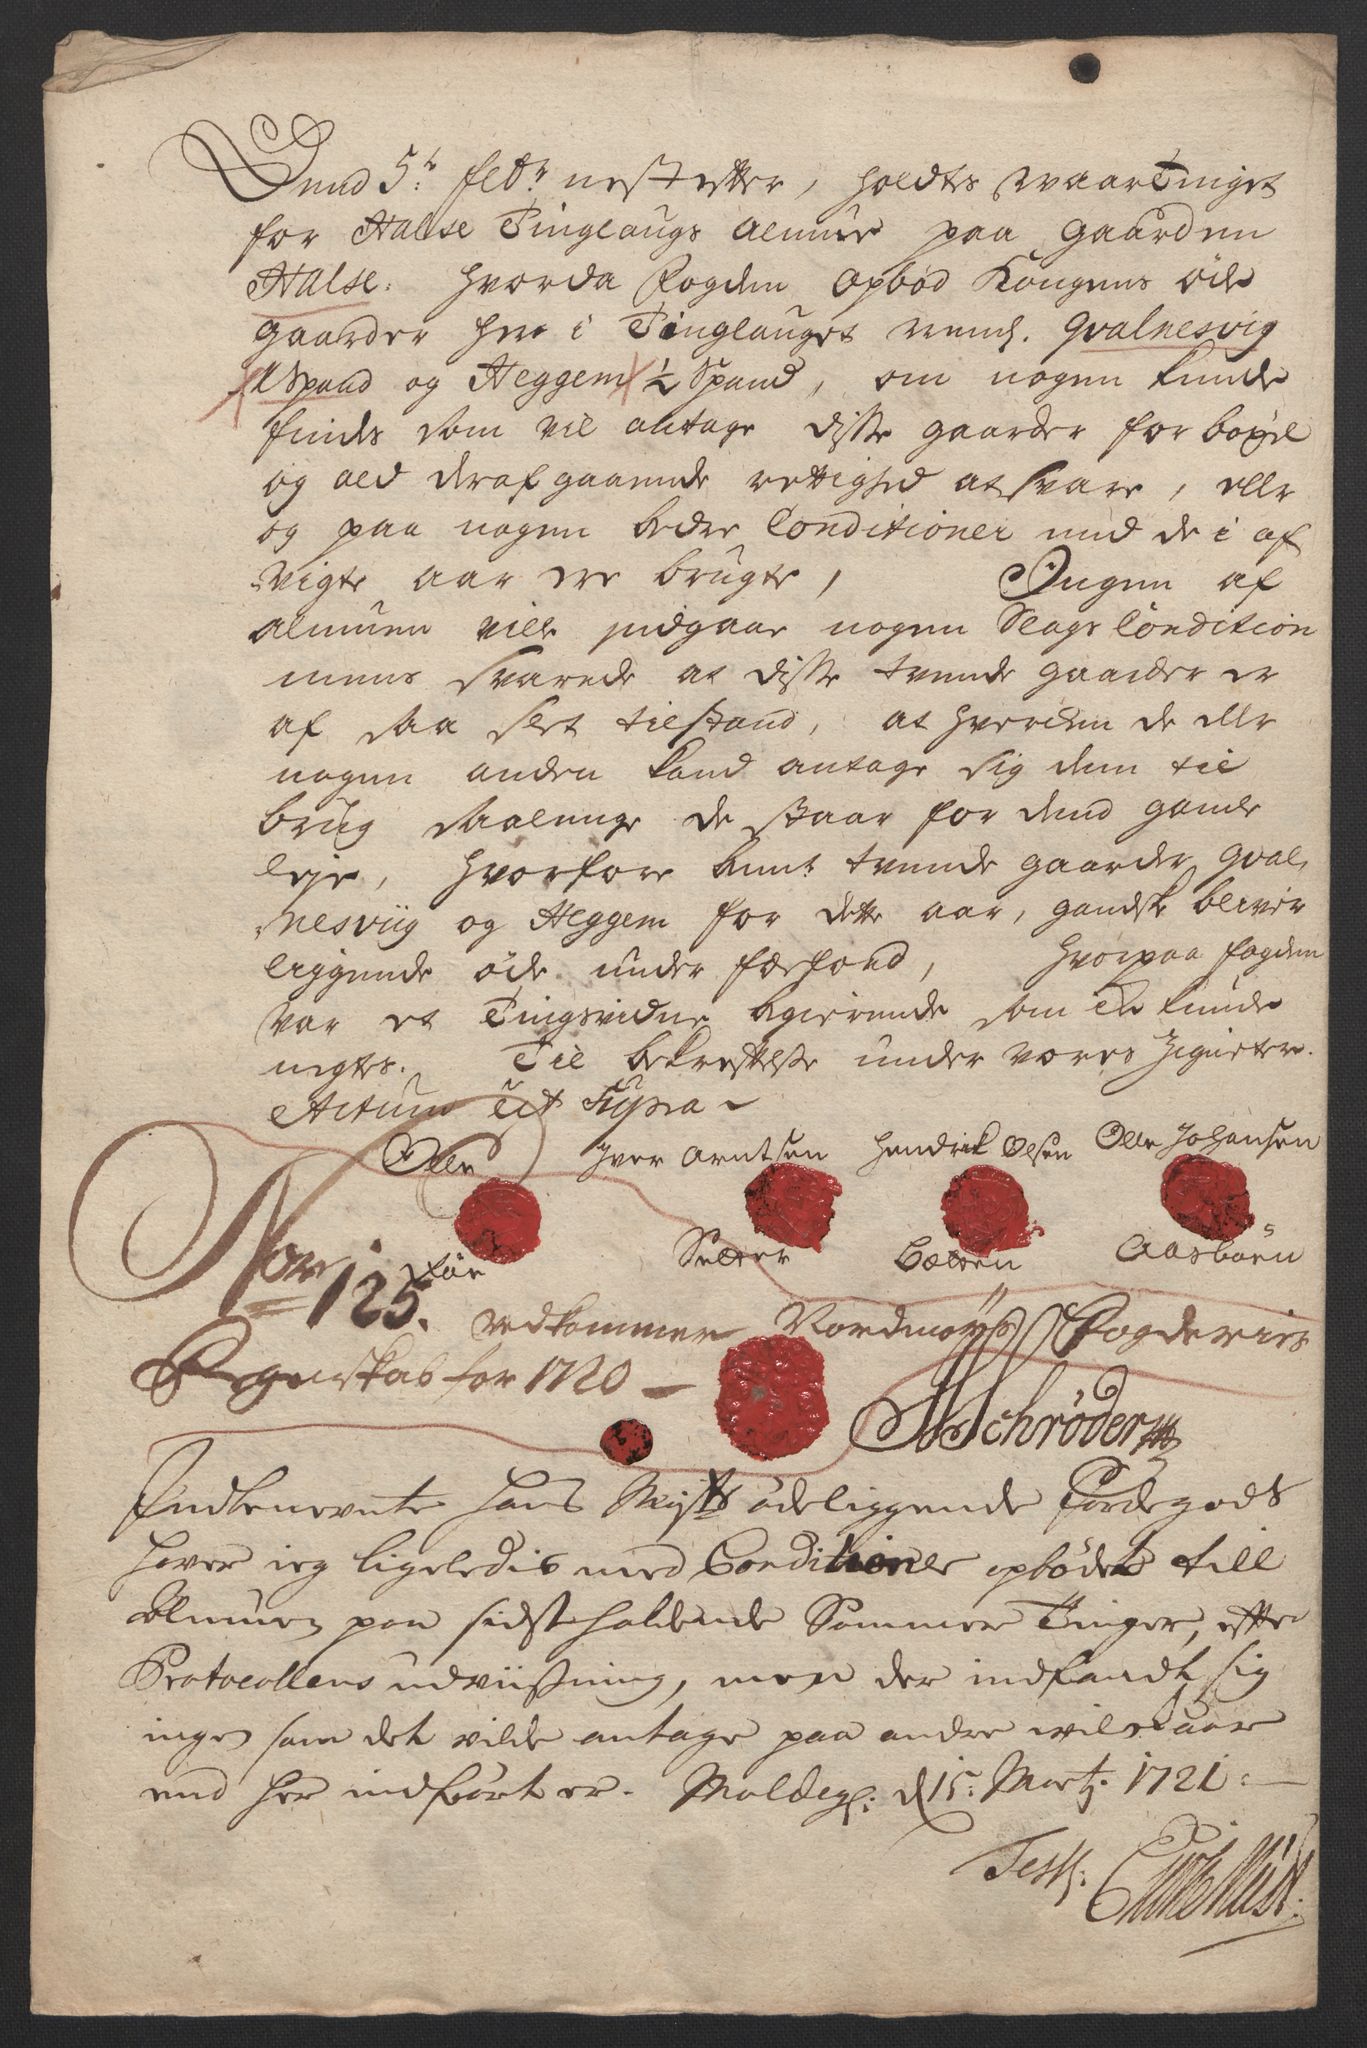 Dend 5te feb: nest efter, holdtes waar Tinget
for Halse Tinglaugs Almue paa gaarden
Halse. hvorda fogden Opbød Kongens øde
gaarder her i Tinglauget nemb. Qvalnesvig
1 Spand og Heggem ½ Spand, om nogen kunde
findes som vil antage disse gaarder for böxel
og ald deraf gaaende rettighed at svare, eller
og paa nogen bedre Conditioner end de i af
vigte aar ere brugte, Ingen af
almuen ville indgaae nogen Slags Condition
mens svarede at disse tvende gaarder er
af saa slet tilstand, at hverchen de eller
nogen anden kand antage sig dem til
brug saalenge de staar for dend gamle
leje, hvorfore bemte tvende gaarder Qval-
nesviig og Heggem for dette aar, gandske bliver
liggende øde under forfond, hvorpaa fogden
var et Tingsvidne begierende som ei kunde
negtes. Til bekreftelse under vores Zigneter.
Actum ut Supra
Olle Iver Arntsen Hendrik Olsen Olle Johansen
Settter Bøtten Aasböen
Nor
125. vedkommer Nordmørs Fogderies
Regenskab for 1720
Schrøder
Indbenevnte Hans Mayts ødeliggende Jordegods
haver ieg ligeledis med Conditioner opbødet till
Almuen paa sidst holdende Sommer Tinger, efter
Protocollens udviisning, men der indfandt sig
ingen som det vilde antage paa andre vilckaar
end her indført er. Moldeg: d 15: Marty. 1721:
Test: